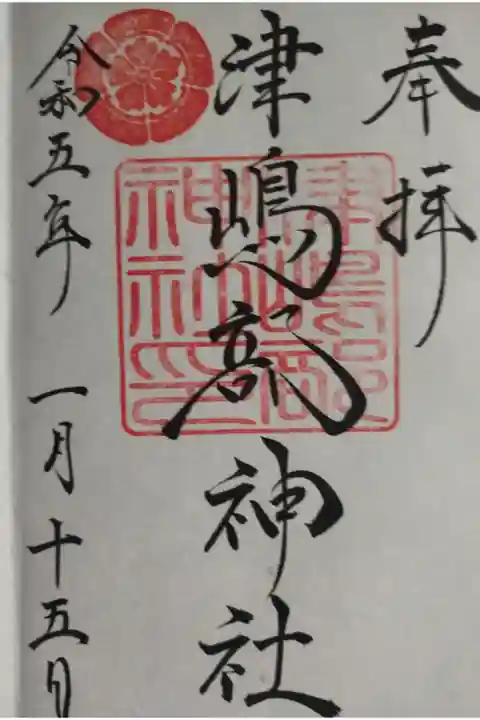 奉拝
津嶋部神社
津嶋部神社印
令和五年 一月十五日